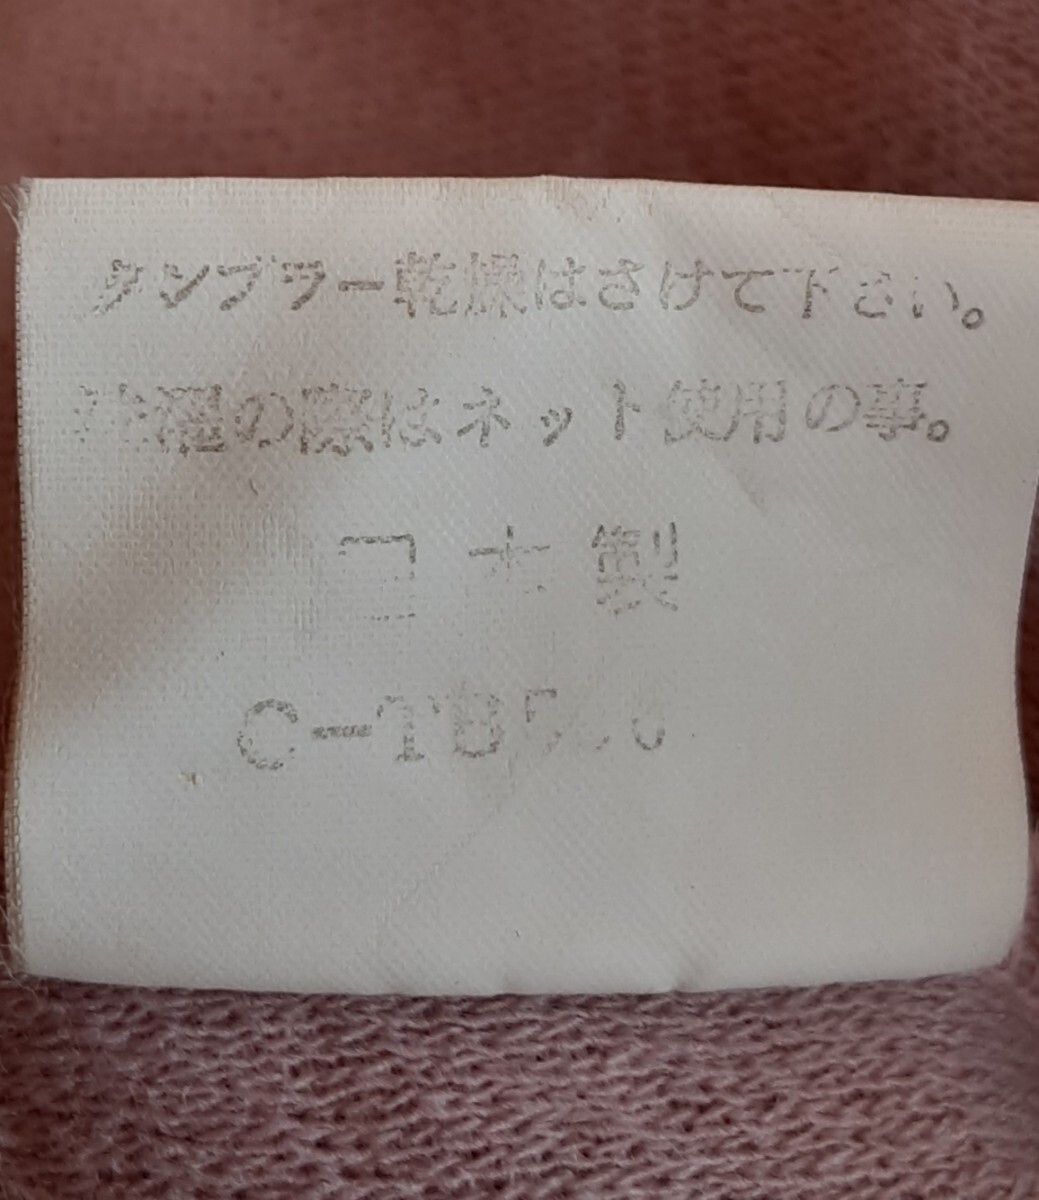 タンブラー乾燥はさけて下さい。
洗濯の際はネット使用の事。
日本製